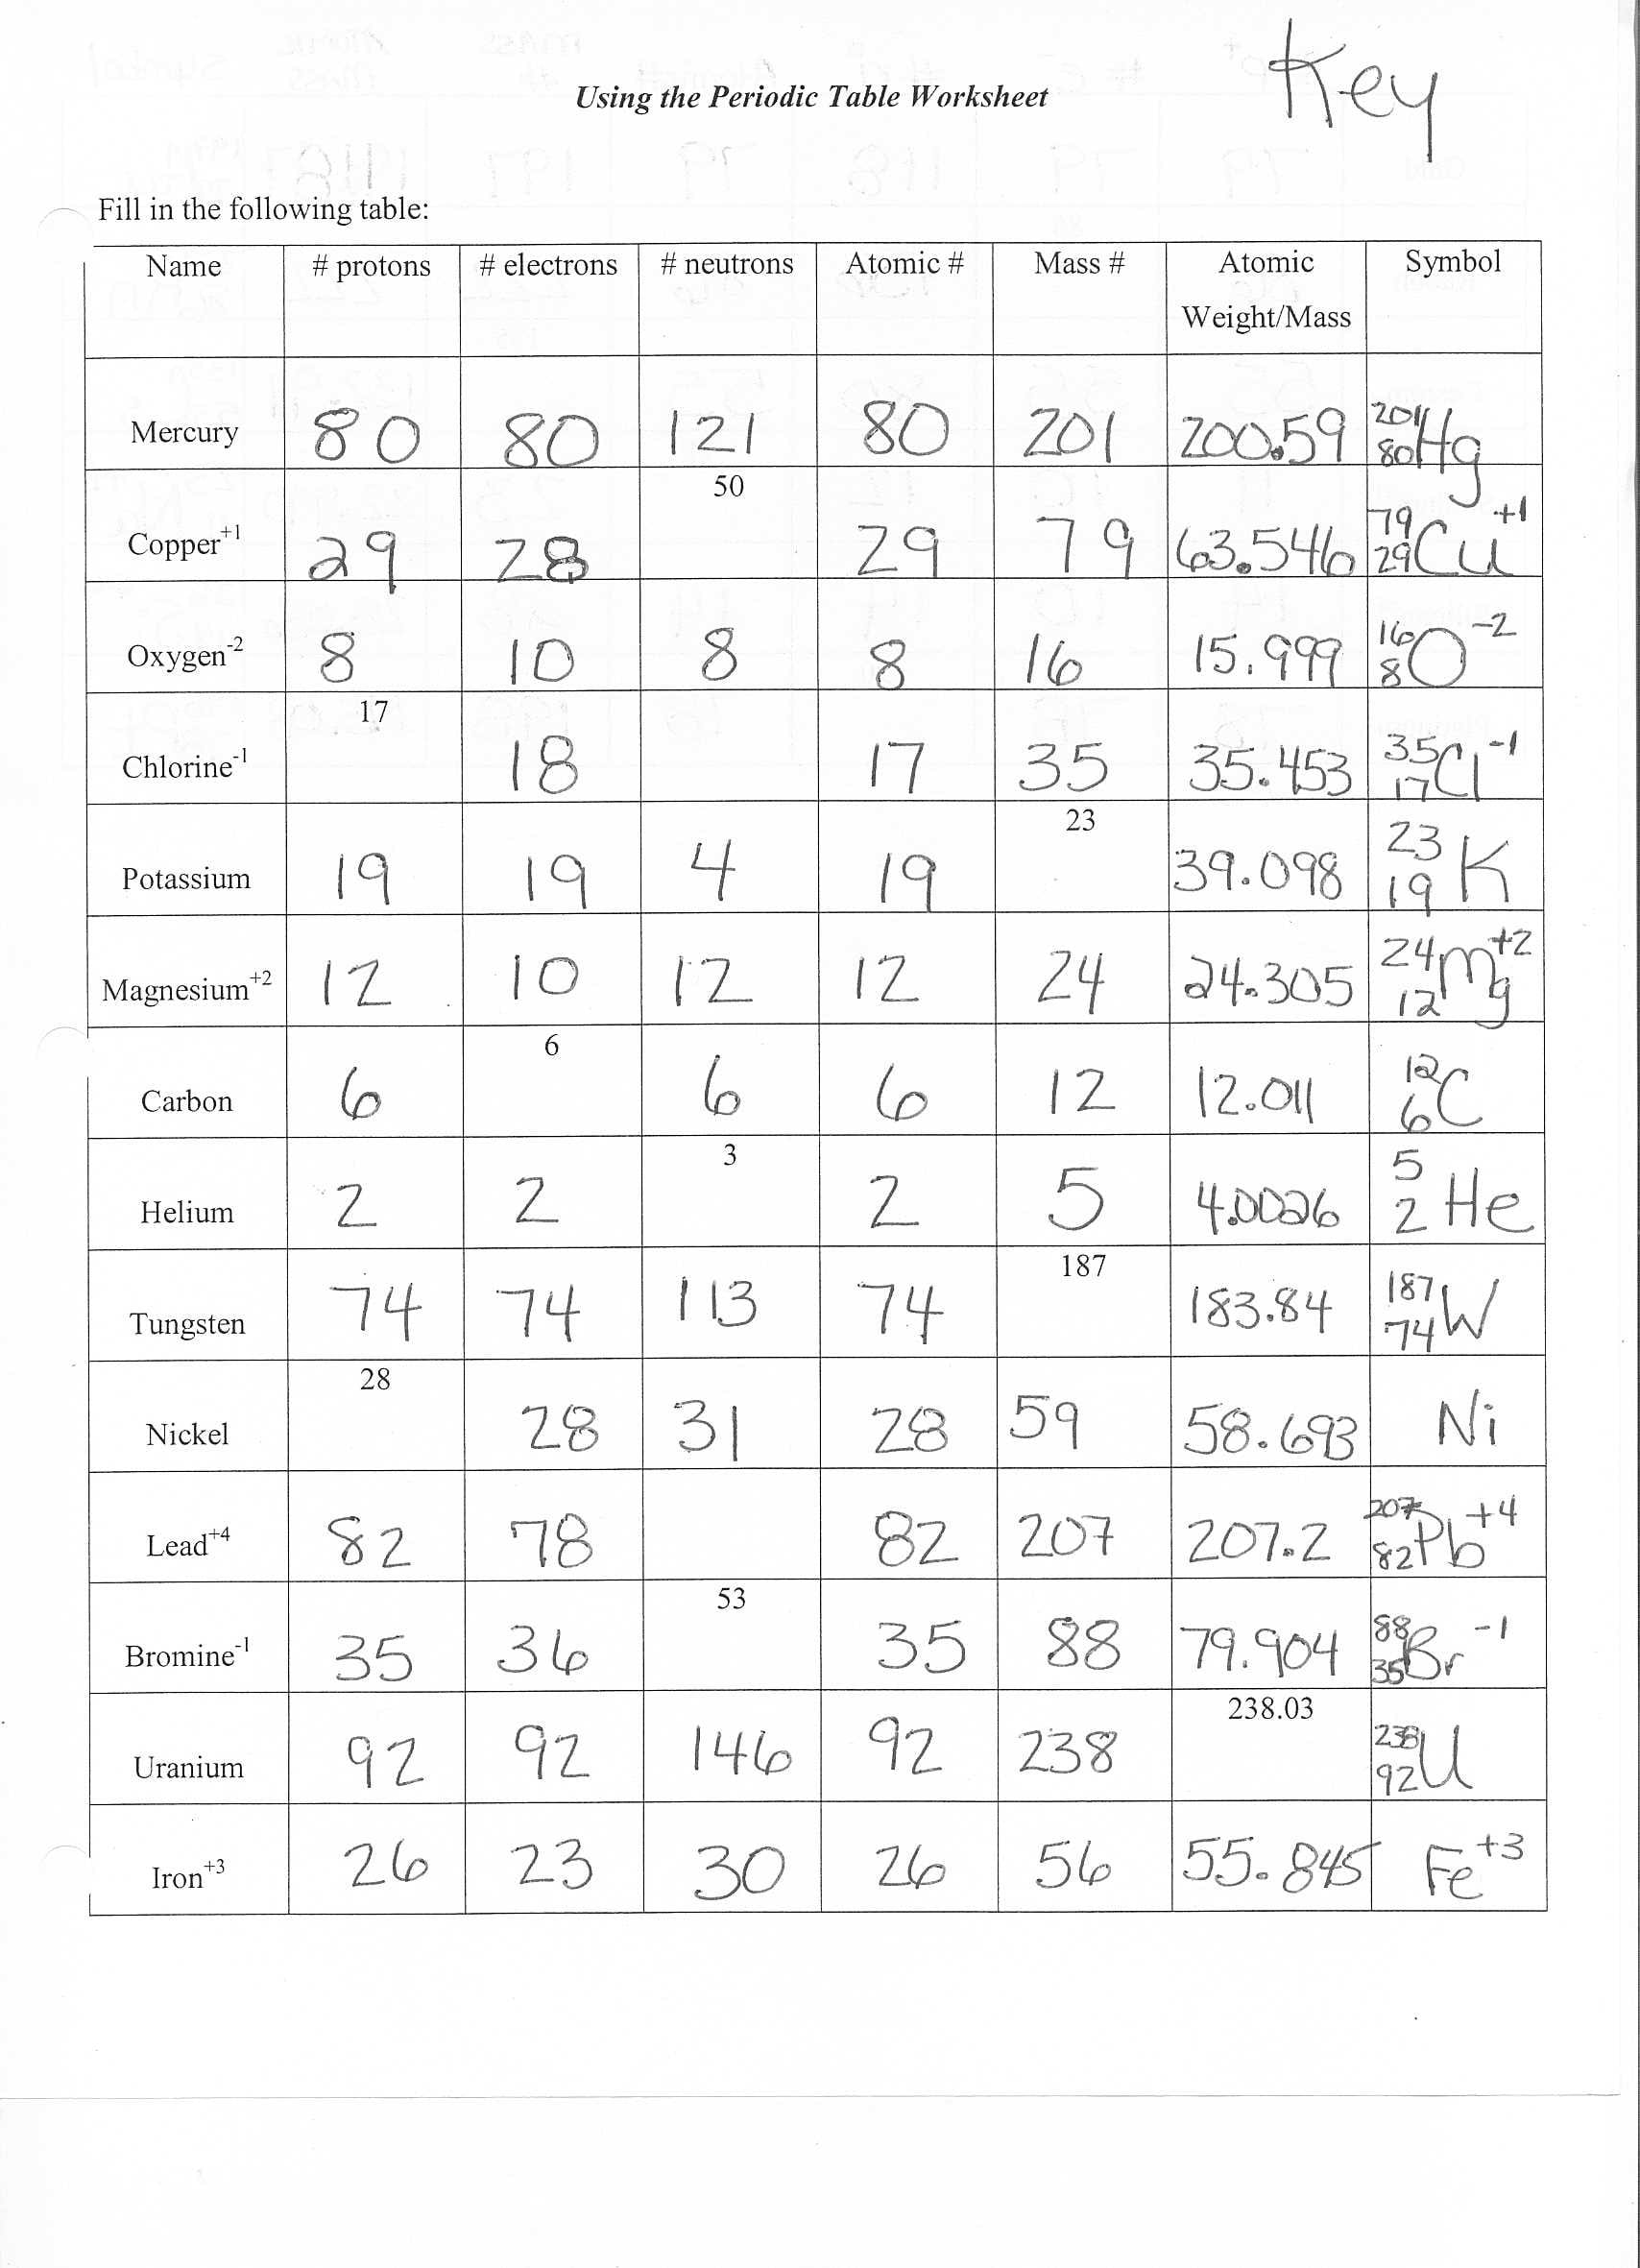 Key
Using the Periodic Table Worksheet
Fill in the following table:
Name # protons # electrons # neutrons Atomic # Mass # Atomic Weight/Mass Symbol
Mercury 80 80 121 80 201 200.59 201 80 Hg
Copper+1 29 28 50 29 79 63.546 79 29 Cu +1
Oxygen-2 8 10 8 8 16 15.999 16 8 O -2
Chlorine-1 17 18 17 35 35.453 35 17 Cl -1
Potassium 19 19 4 19 23 39.098 23 19 K
Magnesium+2 12 10 12 12 24 24.305 24 12 Mg +2
Carbon 6 6 6 6 12 12.011 12 6 C
Helium 2 2 3 2 5 4.0026 5 2 He
Tungsten 74 74 113 74 187 183.84 187 74 W
Nickel 28 28 31 28 59 58.693 Ni
Lead+4 82 78 82 207 207.2 207 82 Pb +4
Bromine-1 35 36 53 35 88 79.904 88 35 Br -1
Uranium 92 92 146 92 238 238.03 238 92 U
Iron+3 26 23 30 26 56 55.845 Fe +3